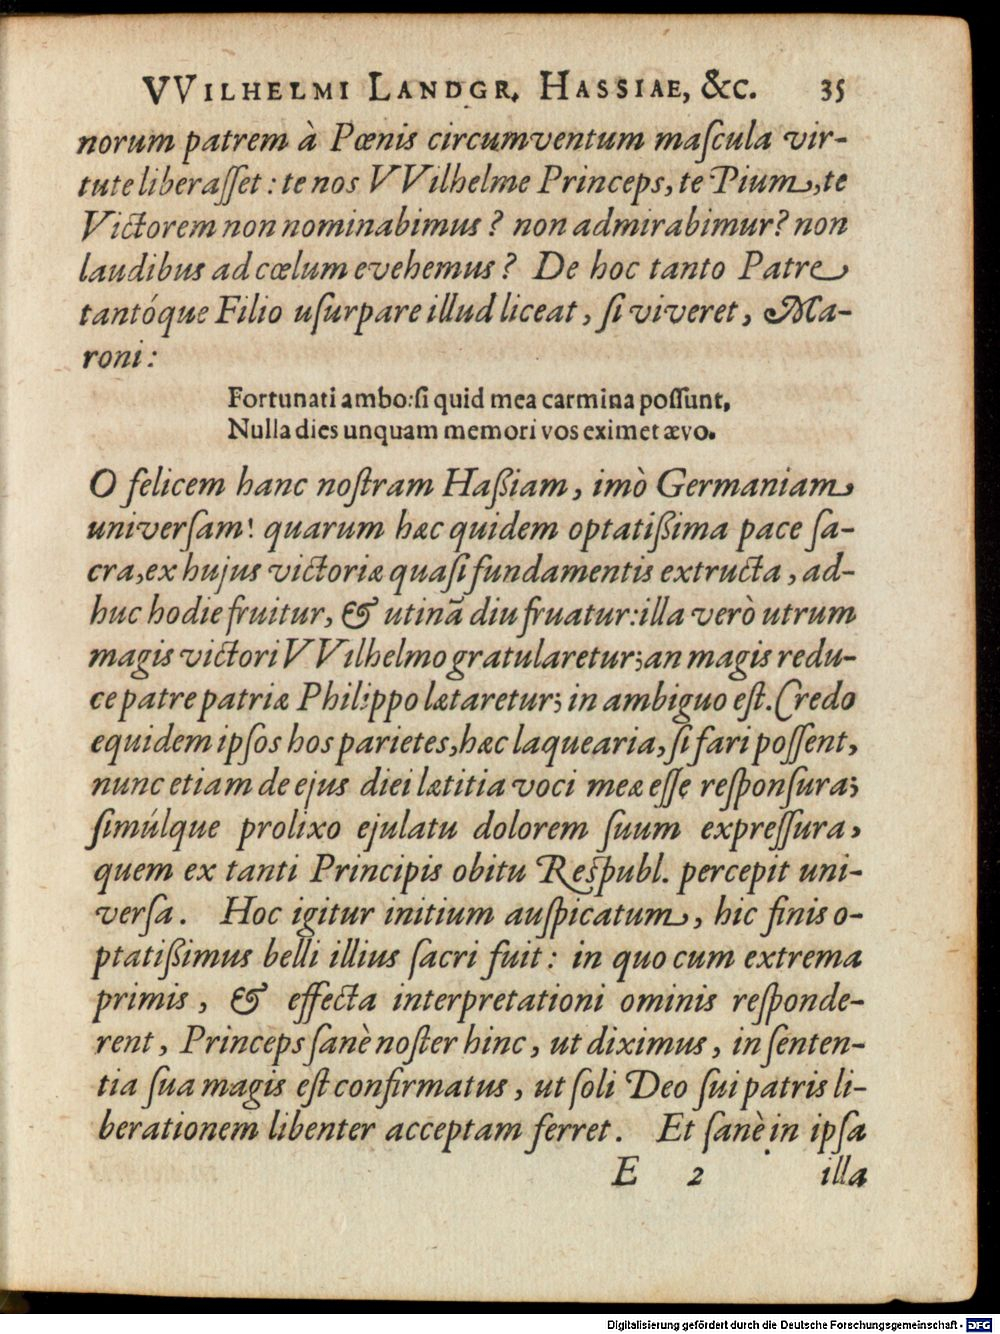 VVILHELMI LANDGR. HASSIAE, &c. 35
norum patrem à Pœnis circumventum maſcula vir-
tute liberaſſet: te nos VVilhelme Princeps, te Pium, te
Victorem non nominabimus? non admirabimur? non
laudibus ad cœlum evehemus? De hoc tanto Patre
tantóque Filio uſurpare illud liceat, ſi viveret, Ma-
roni:
Fortunati ambo: ſi quid mea carmina poſſunt,
Nulla dies unquam memori vos eximet ævo.
O felicem hanc noſtram Haßiam, imò Germaniam
univerſam! quarum hæc quidem optatißima pace ſa-
cra, ex hujus victoriæ quaſi fundamentis extructa, ad-
huc hodie fruitur, & utinā diu fruatur: illa verò utrum
magis victori VVilhelmo gratularetur; an magis redu-
ce patre patriæ Philippo lætaretur; in ambiguo eſt. Credo
equidem ipſos hos parietes, hæc laquearia, ſi fari poſſent,
nunc etiam de ejus diei lætitia voci meæ eſſe reſponſura;
ſimúlque prolixo ejulatu dolorem ſuum expreſſura,
quem ex tanti Principis obitu Reſpubl. percepit uni-
verſa. Hoc igitur initium auſpicatum, hic finis o-
ptatißimus belli illius ſacri fuit: in quo cum extrema
primis, & effecta interpretationi ominis reſponde-
rent, Princeps ſanè noſter hinc, ut diximus, in ſenten-
tia ſua magis eſt confirmatus, ut ſoli Deo ſui patris li-
berationem libenter acceptam ferret. Et ſanè in ipſa
E 2 illa
Digitalisierung gefördert durch die Deutsche Forschungsgemeinschaft - DFG